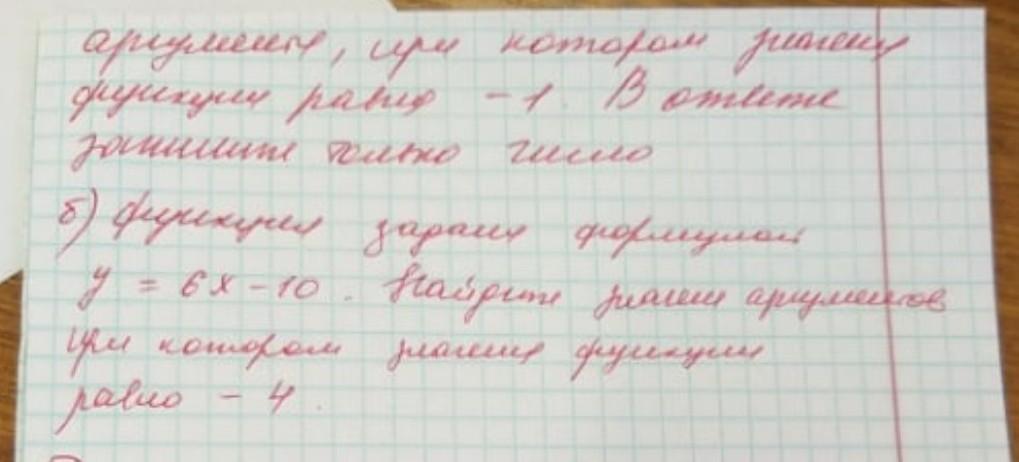 аргумента, при котором значение
функции равно -1. В ответе
запишите только число
б) функция задана формулой
y = 6x - 10. Найдите значен аргументов
при котором значение функции
равно - 4.